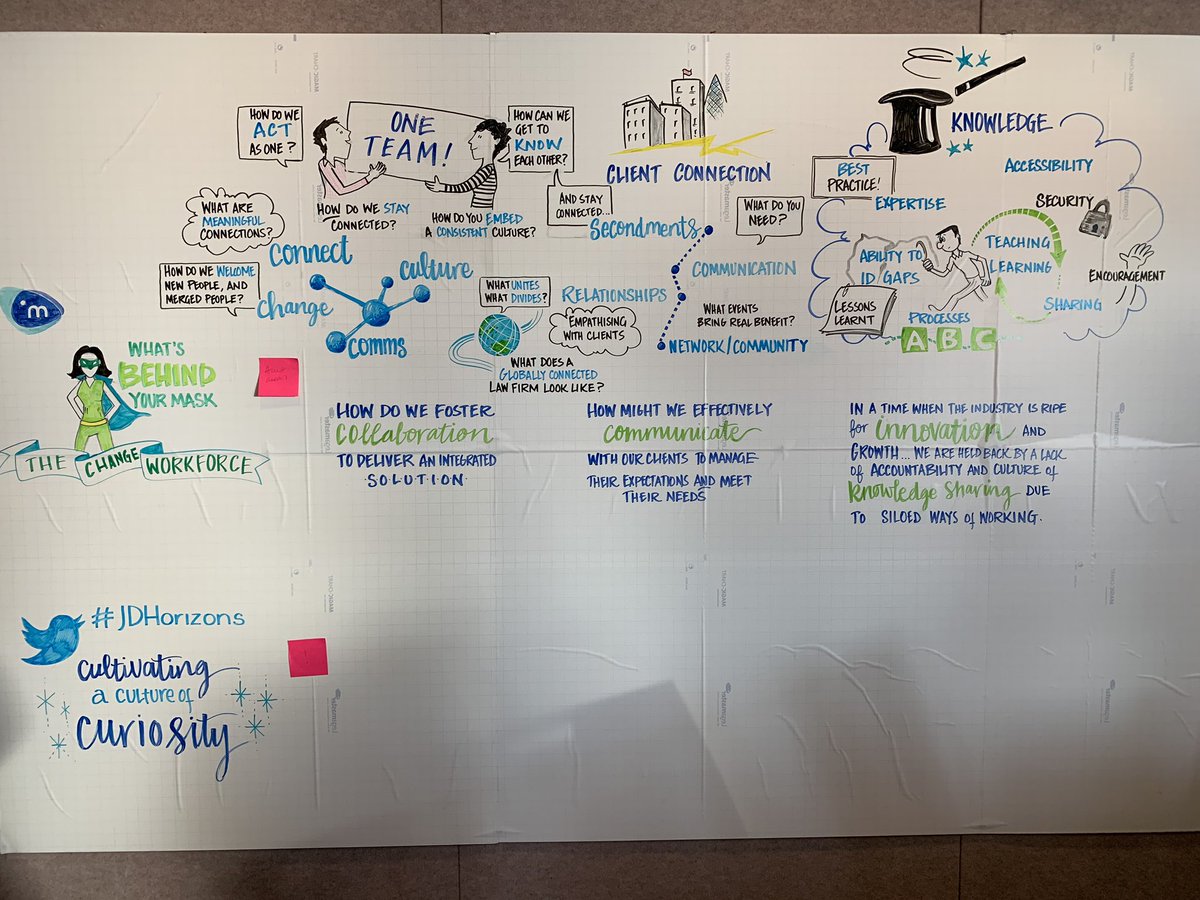 HOW DO WE
ACT
AS ONE?
ONE
TEAM!
HOW CAN WE
GET TO
KNOW
EACH OTHER?
AND STAY
CONNECTED...
WHAT ARE
MEANINGFUL
CONNECTIONS?
HOW DO WE STAY
CONNECTED?
HOW DO YOU EMBED
A CONSISTENT CULTURE?
HOW DO WE WELCOME
NEW PEOPLE, AND
MERGED PEOPLE?
connect
culture
change
comms
WHAT UNITES
WHAT DIVIDES?
WHAT DOES A
GLOBALLY CONNECTED
LAW FIRM LOOK LIKE?
CLIENT CONNECTION
Secondments
WHAT DO YOU
NEED?
COMMUNICATION
RELATIONSHIPS
EMPATHISING
WITH CLIENTS
WHAT EVENTS
BRING REAL BENEFIT?
NETWORK/COMMUNITY
KNOWLEDGE
BEST
PRACTICE!
EXPERTISE
ACCESSIBILITY
SECURITY
ABILITY TO
ID GAPS
TEACHING
LEARNING
ENCOURAGEMENT
LESSONS
LEARNT
PROCESSES
A B C
SHARING
m
WHAT'S
BEHIND
YOUR MASK
THE CHANGE WORKFORCE
HOW DO WE FOSTER
COLLABORATION
TO DELIVER AN INTEGRATED
SOLUTION
HOW MIGHT WE EFFECTIVELY
communicate
WITH OUR CLIENTS TO MANAGE
THEIR EXPECTATIONS AND MEET
THEIR NEEDS
IN A TIME WHEN THE INDUSTRY IS RIPE
for innovation AND
GROWTH... WE ARE HELD BACK BY A LACK
of ACCOUNTABILITY AND CULTURE of
Knowledge Sharing DUE
TO SILOED WAYS of WORKING.
#JDHorizons
cultivating
a culture of
curiosity